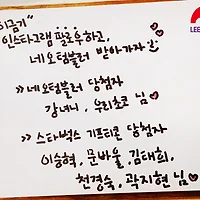 "이금기"
인스타그램 팔로우하고,
네오텀블러 받아가자
» 네오텀블러 당첨자
강녀니, 우리초코 님
» 스타벅스 기프티콘 당첨자
이승현, 문바울, 김태희,
천경숙, 곽지현 님
LEE